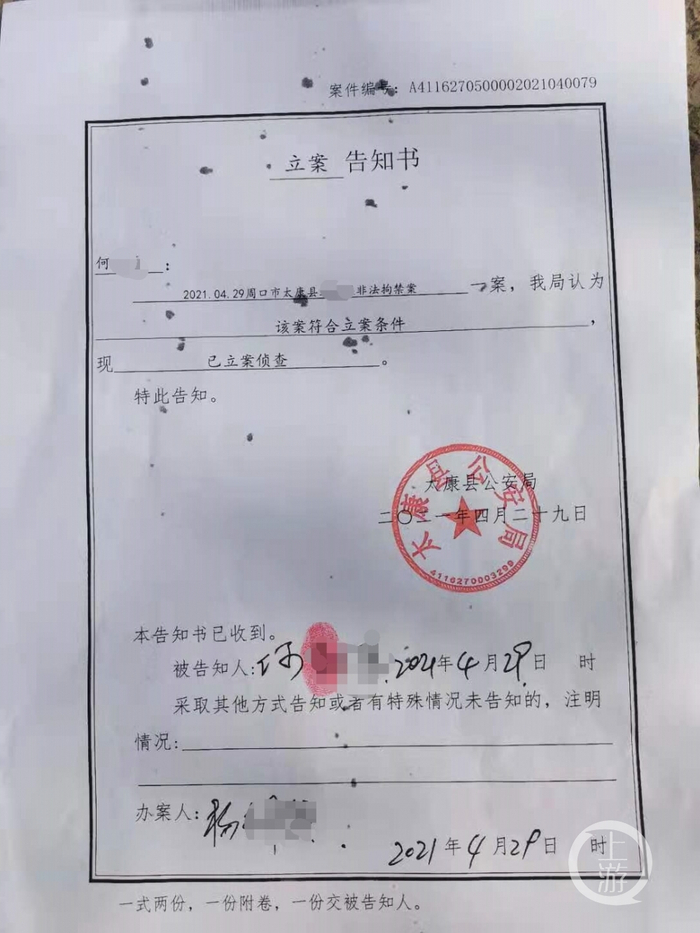 案件编号：A4116270500002021040079
立案 告知书
何 ：
2021.04.29周口市太康县 非法拘禁案 一案，我局认为
该案符合立案条件，
现 已立案侦查。
特此告知。
太康县公安局
二〇二一年四月二十九日
太康县公安局
4110270003209
本告知书已收到。
被告知人：何 2021年4月29日 时
采取其他方式告知或者有特殊情况未告知的，注明
情况：
办案人：杨
2021年4月29日 时
一式两份，一份附卷，一份交被告知人。
上游